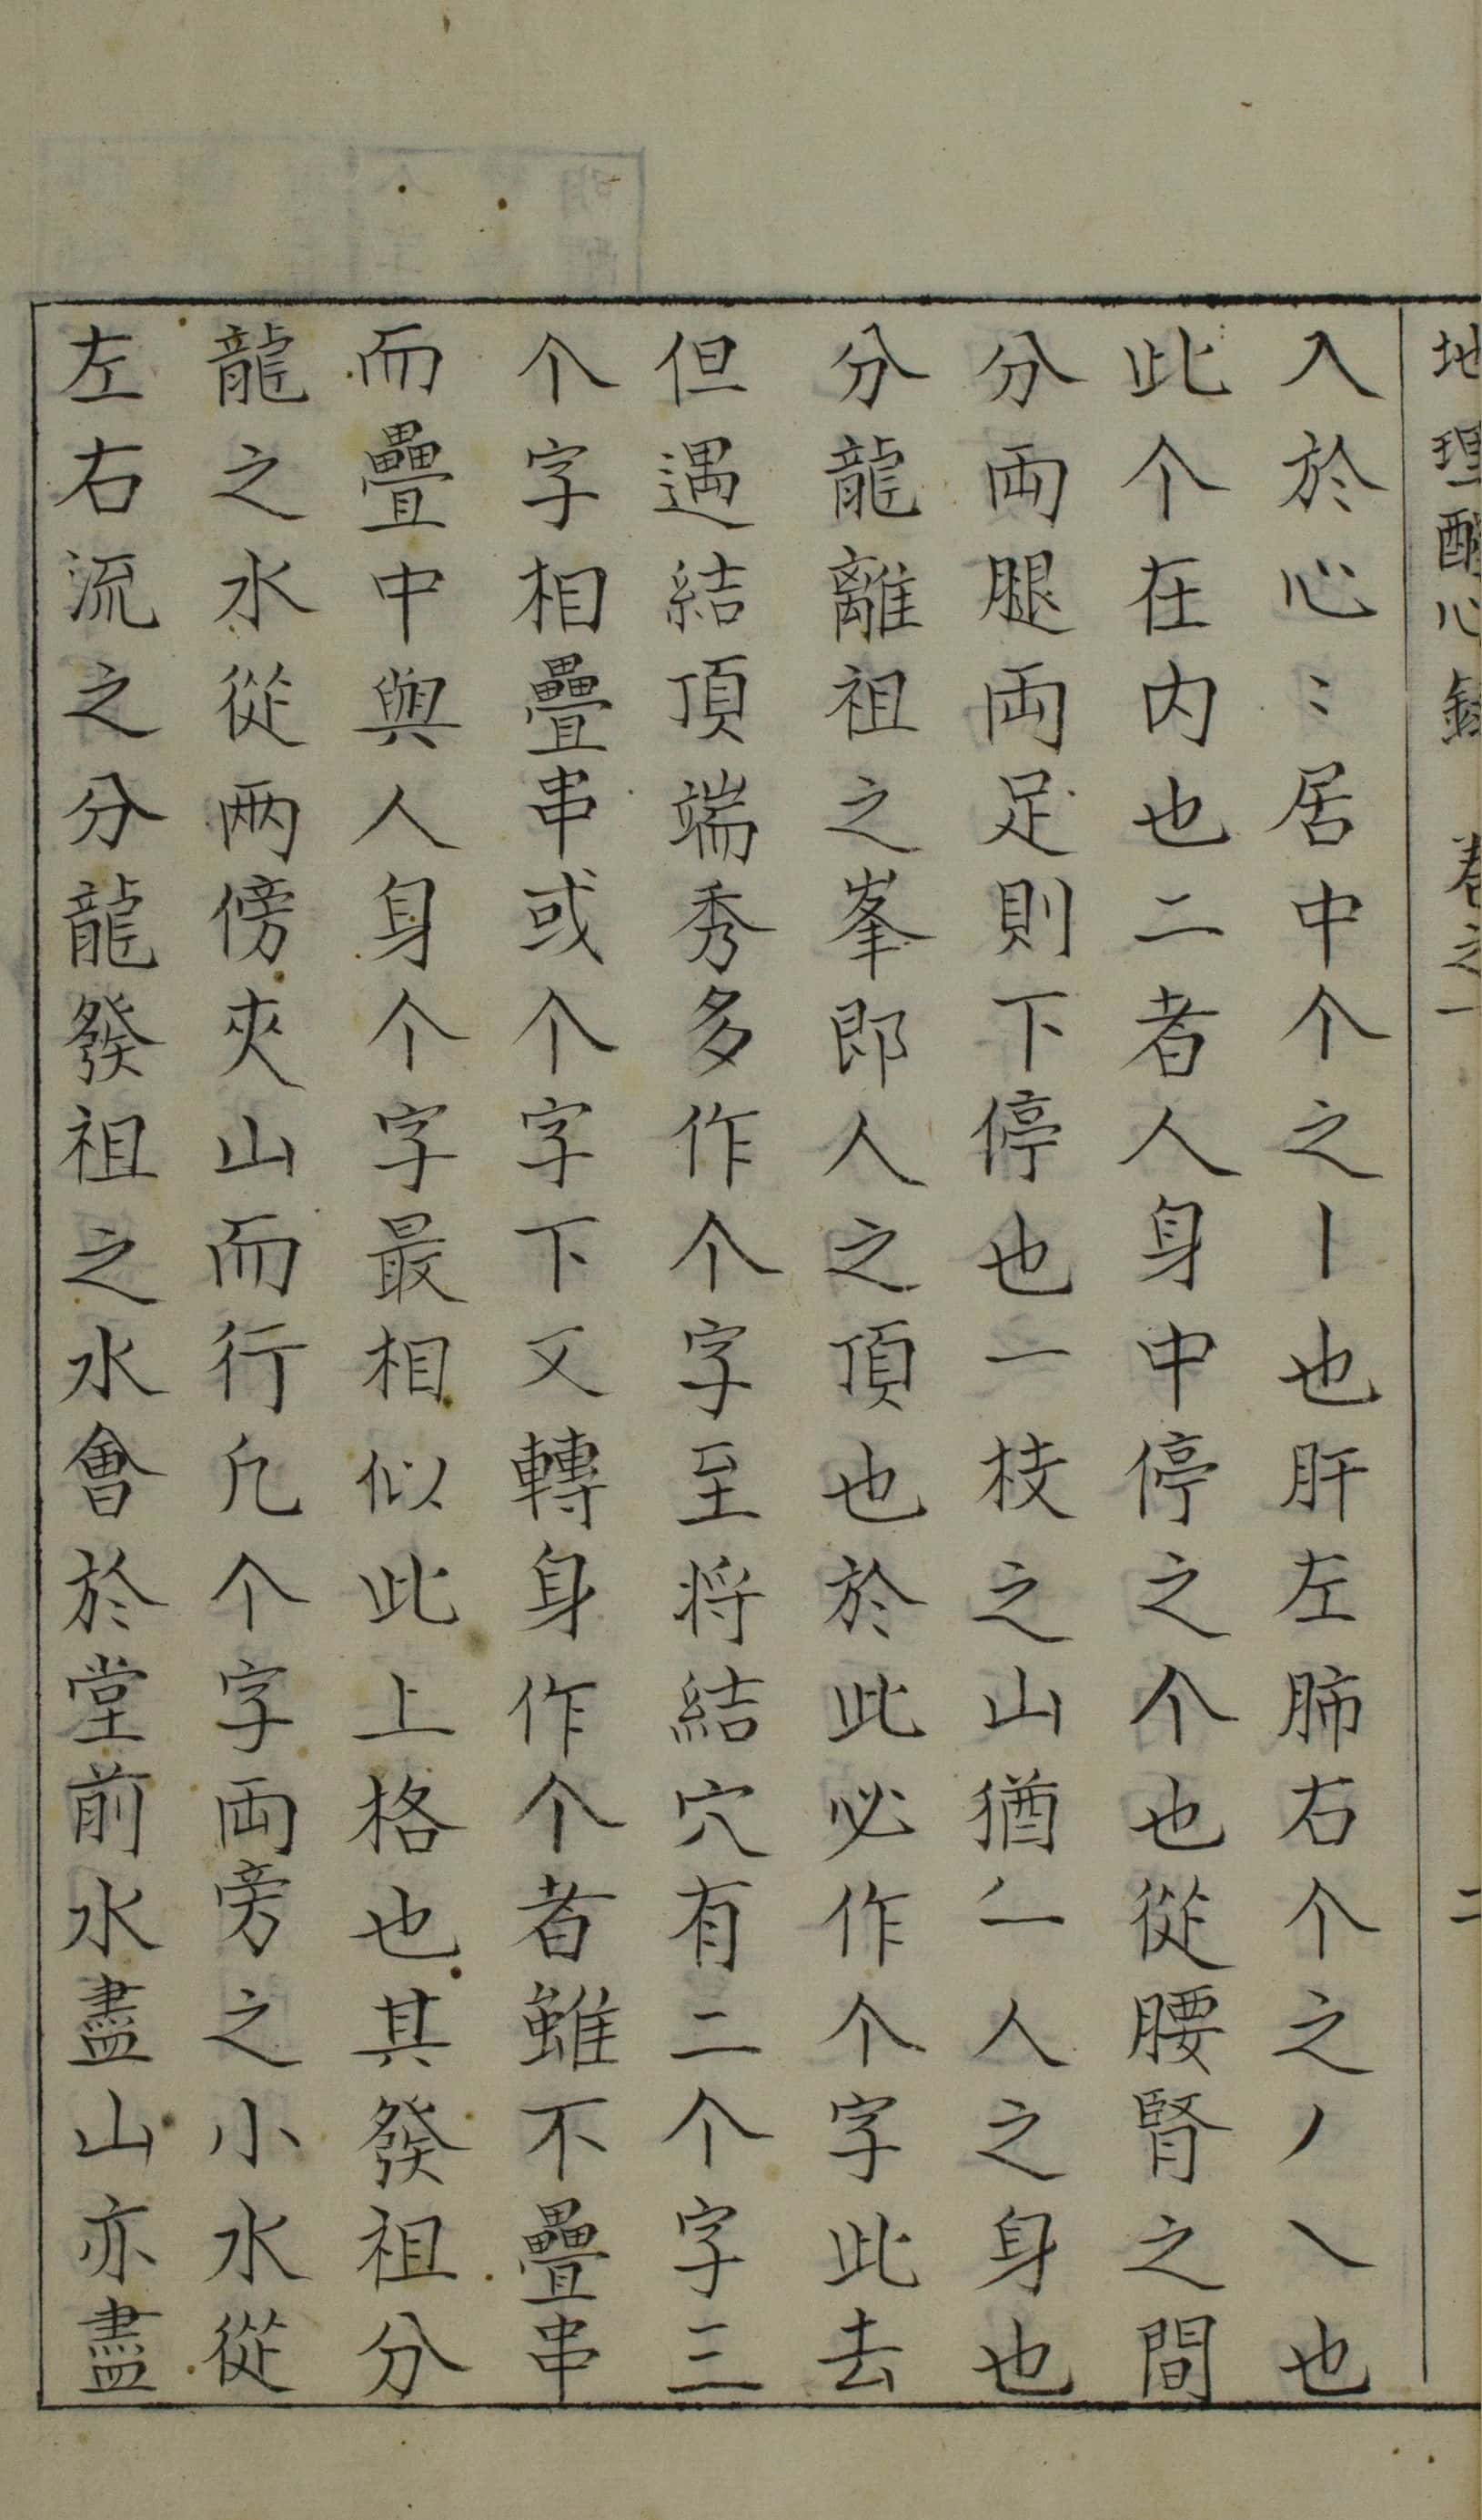 地理醒心錄 卷之一 二
入於心〻居中个之丨也肝左肺右个之丿乀也
此个在内也二者人身中停之个也從腰腎之間
分両腿両足則下停也一枝之山猶一人之身也
分龍離祖之峯即人之頂也於此必作个字此去
但遇結頂端秀多作个字至将結穴有二个字三
个字相疊串或个字下又轉身作个者雖不疊串
而疊中與人身个字最相似此上格也其發祖分
龍之水從两傍夾山而行凢个字両旁之小水從
左右流之分龍發祖之水會於堂前水盡山亦盡